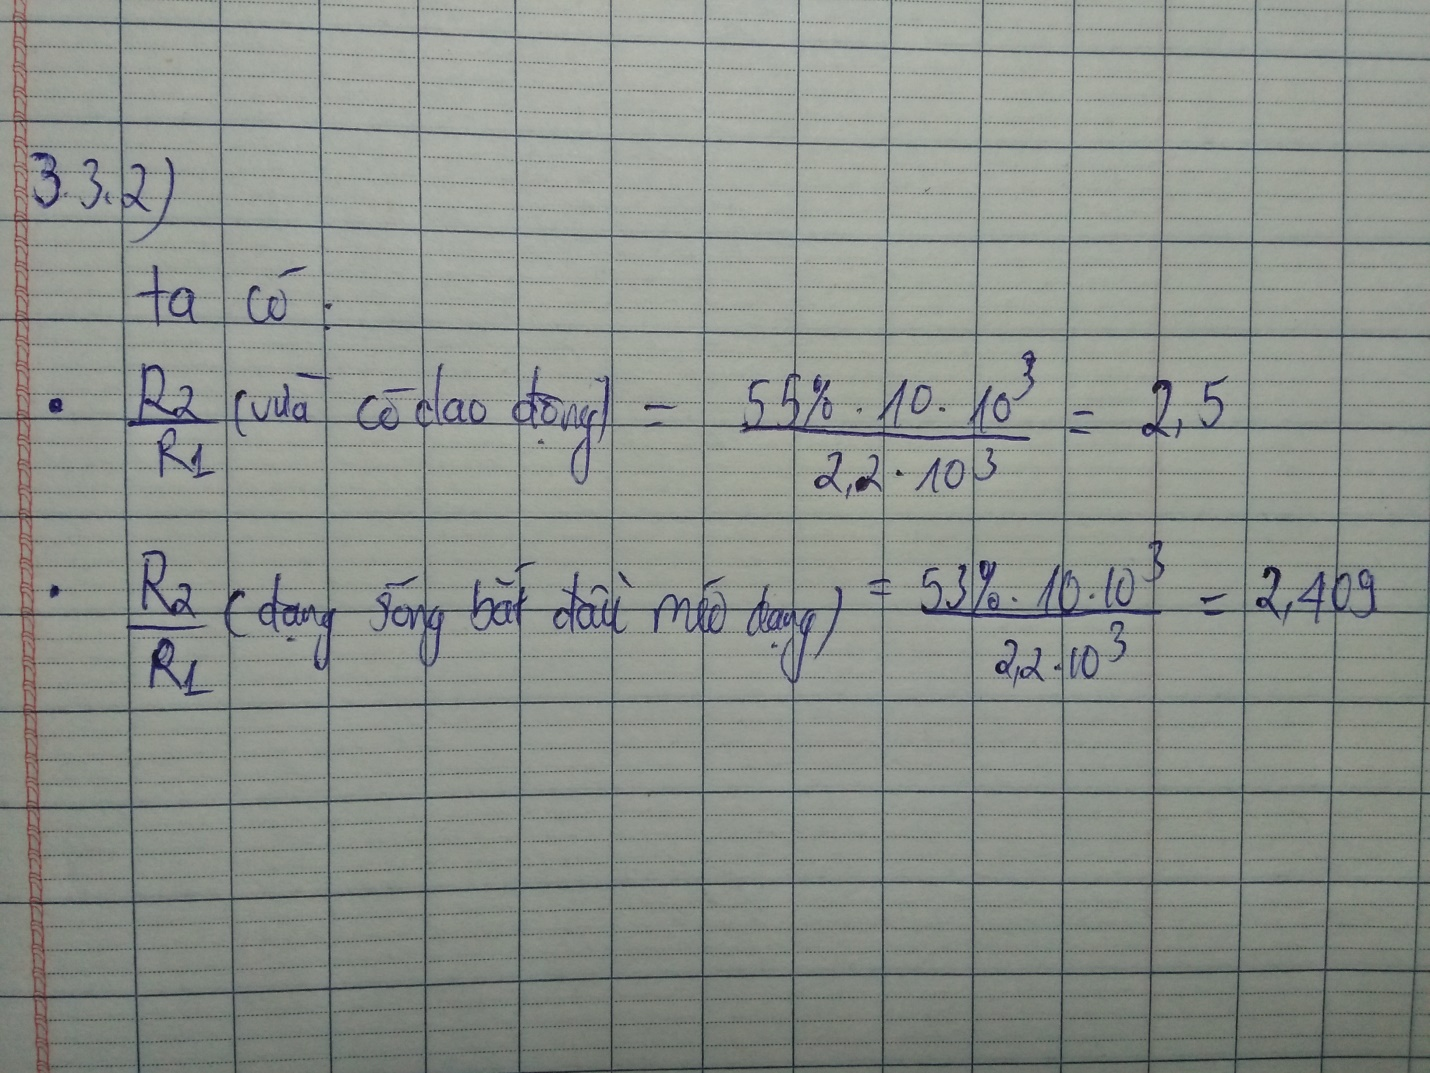 3.3.2)
ta có:
• R2/R1 (vừa có dao động) = 55% . 10 . 10^3 / 2,2 . 10^3 = 2,5
• R2/R1 (dạng sóng bắt đầu méo dạng) = 53% . 10 . 10^3 / 2,2 . 10^3 = 2,409